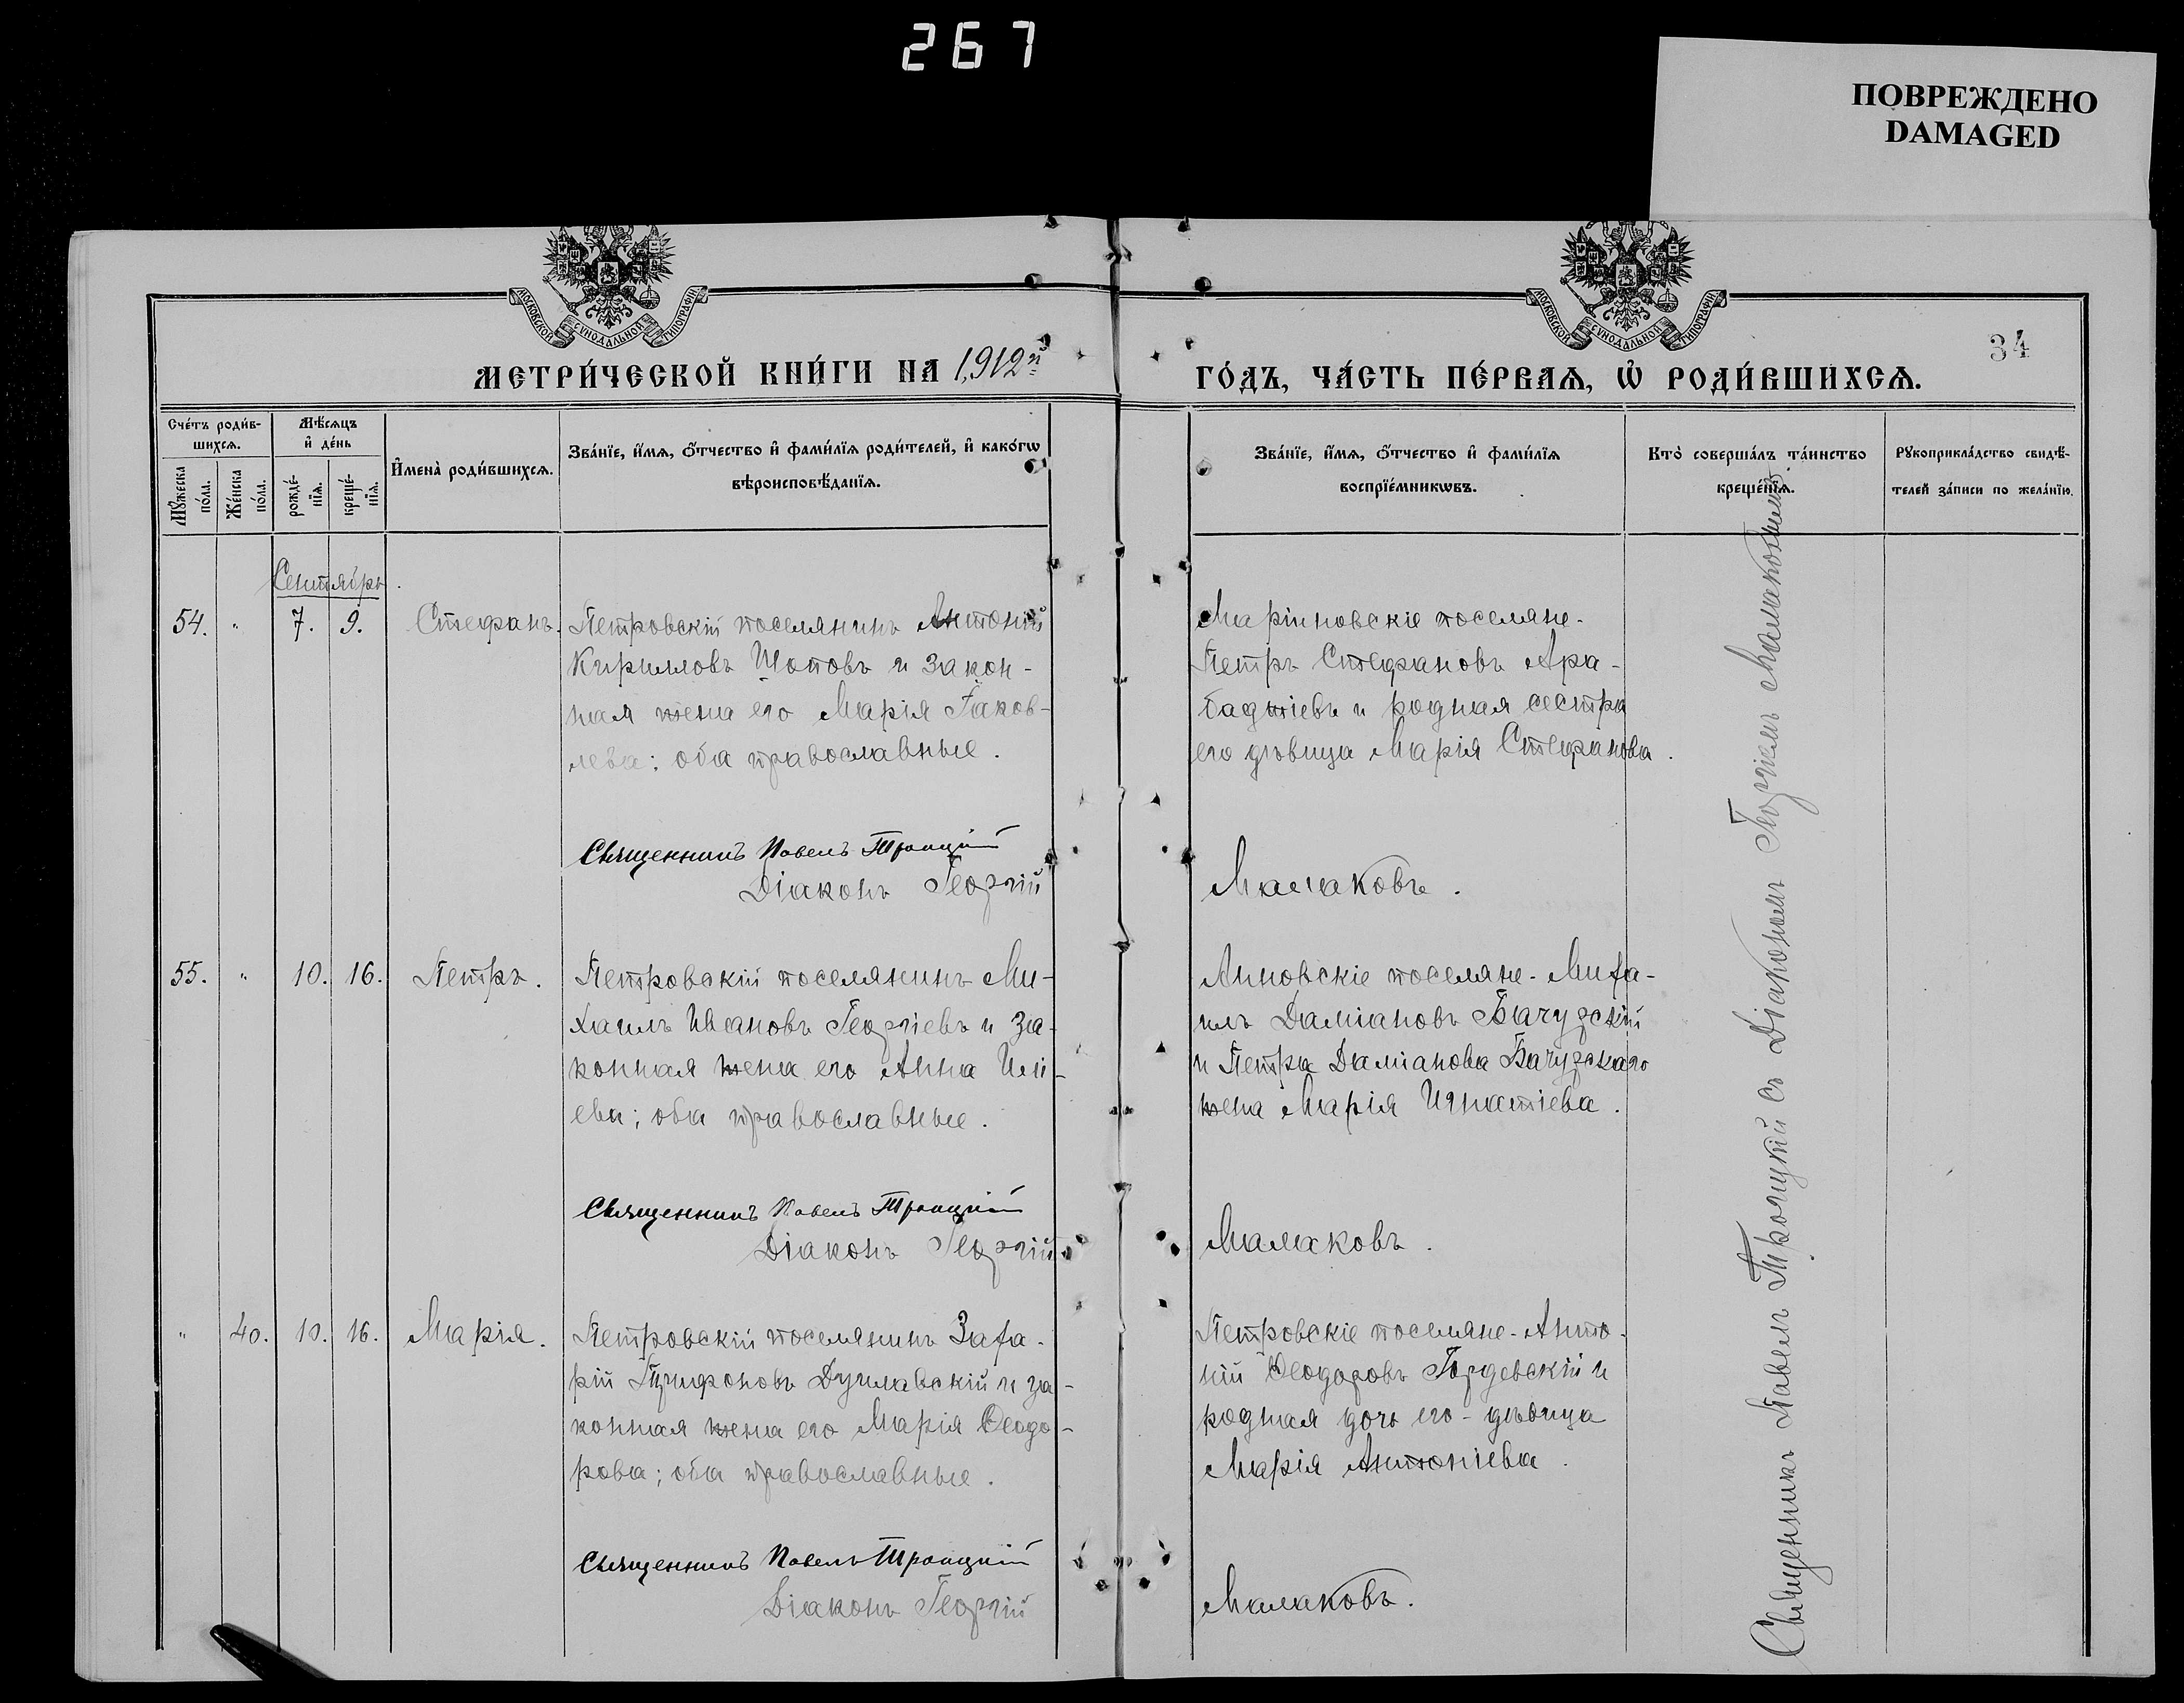 267
ПОВРЕЖДЕНО
DAMAGED
МОСКОВСКОЙ СѴНОДАЛЬНОЙ ТИПОГРАФІИ
МОСКОВСКОЙ СѴНОДАЛЬНОЙ ТИПОГРАФІИ
34
МЕТРИ́ЧЕСКОЙ КНИ́ГИ НА 1912й
ГО́ДЪ, ЧА́СТЬ ПЕ́РВАѦ, Ѡ҆ РОДИ́ВШИХСѦ.
Сче́тъ роди́в-
шихсѧ.
Мꙋ́жеска
по́ла.
Же́нска
по́ла.
Мѣ́сѧцъ
и҆ де́нь
рожде́-
нїѧ.
креще́-
нїѧ.
И҆мена̀ роди́вшихсѧ.
Зва́нїе, и҆́мѧ, ѻ҆́тчество и҆ фами́лїѧ роди́телей, и҆ како́гѡ
вѣроисповѣ́данїѧ.
Зва́нїе, и҆́мѧ, ѻ҆́тчество и҆ фами́лїѧ
воспрїе́мникѡвъ.
Кто̀ соверша́лъ та́инство
креще́нїѧ.
Рꙋкоприкла́дство свидѣ́-
телей за́писи по жела́нїю.
Сентябрь.
54. " 7. 9. Стефанъ.
Петровскій поселянинъ Антоній
Кирилловъ Шоповъ и закон-
ная жена его Марія Іаков-
лева; оба православные.
Священникъ Павелъ Троицкій
Діаконъ Георгій
Маріиновскіе поселяне-
Петръ Стефановъ Ара-
баджіевъ и родная сестра
его дѣвица Марія Стефанова.
Малаковъ.
55. " 10. 16. Петръ.
Петровскій поселянинъ Ми-
хаилъ Ивановъ Георгіевъ и за-
конная жена его Анна Илі-
ева; оба православные.
Священникъ Павелъ Троицкій
Діаконъ Георгій
Анновскіе поселяне-Миха-
илъ Даміановъ Бачурскій
и Петра Даміанова Бачурскаго
жена Марія Игнатіева.
Малаковъ.
" 40. 10. 16. Марія.
Петровскій поселянинъ Заха-
рій Трифоновъ Друмавскій и за-
конная жена его Марія Ѳеодо-
рова; оба православные.
Священникъ Павелъ Троицкій
Діаконъ Георгій
Петровскіе поселяне-Анто-
ній Ѳеодоровъ Гордевскій и
родная дочь его-дѣвица
Марія Антоніева.
Малаковъ.
Священникъ Павелъ Троицкій съ Діакономъ Георгіемъ Малаковымъ